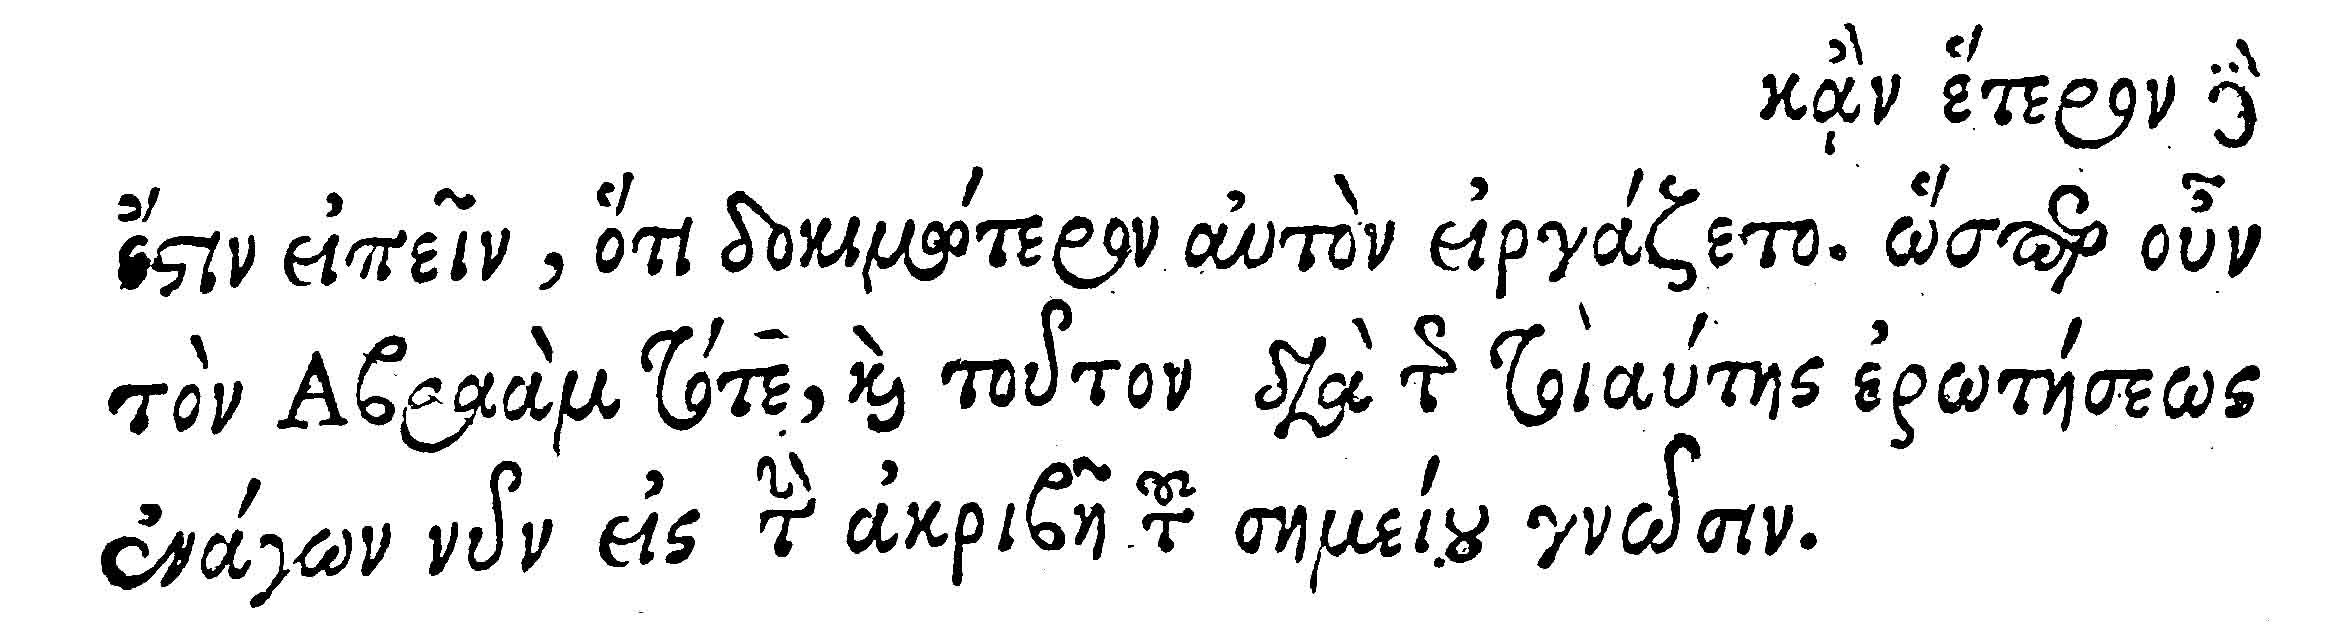 κᾂν ἕτερον δὲ
ἔστιν εἰπεῖν, ὅτι δοκιμώτερον αὐτὸν εἰργάζετο. ὥσπερ οὖν
τὸν Αβραὰμ τότε, καὶ τοῦτον διὰ τῆς τοιαύτης ἐρωτήσεως
ἐνάγων νῦν εἰς τὴν ἀκριβῆ τοῦ σημείου γνῶσιν.